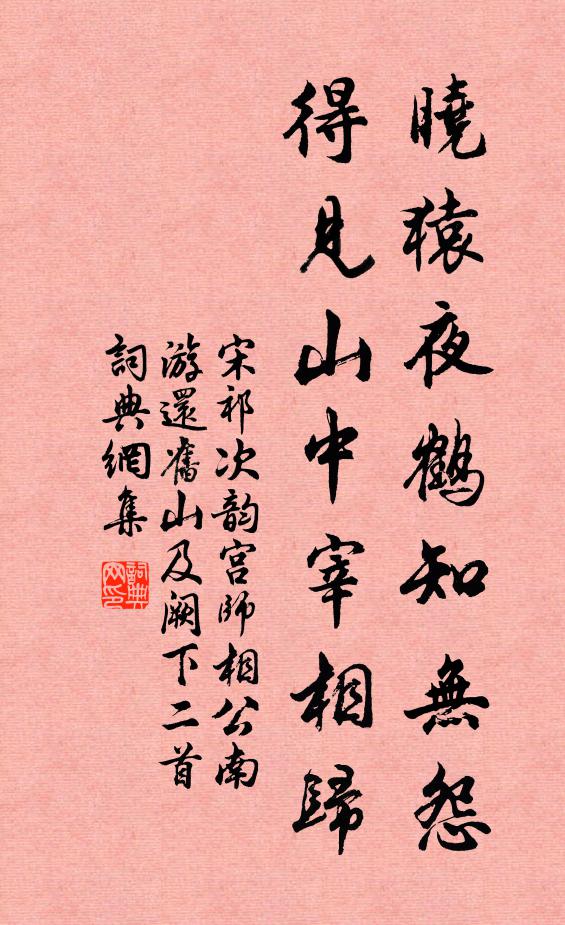 曉猿夜鶴知無怨
得見山中宰相歸
宋祁次韵宫師相公南
游還舊山及闕下二首
詞典網集
詞典网印